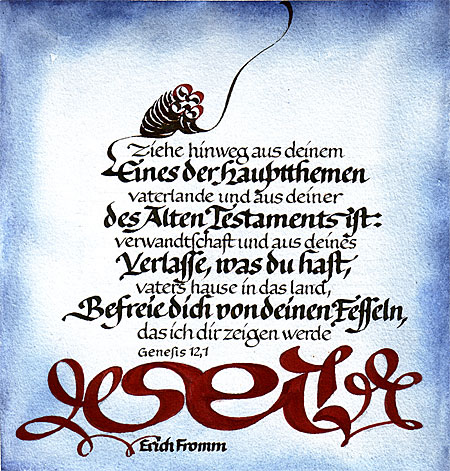 Ziehe hinweg aus deinem
Eines der Hauptthemen
vaterlande und aus deiner
des Alten Teſtaments iſt:
verwandtſchaft und aus deines
Verlaſſe, was du haſt,
vaters hause in das land,
Befreie dich von deinen Feſſeln,
das ich dir zeigen werde
Geneſis 12,1
sei!
Erich Fromm